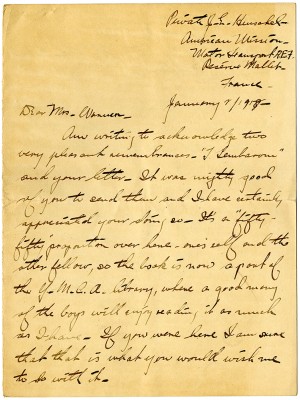 Private J. E. Henschel-
American Mission-
Motor Transport R.E.F.
Reserve Mallet-
France-
January 7/1918-
Dear Mrs- Wanven-
Am writing to acknowledge two
very pleasant remembrances- "T Tembarom"
and your letter- It was mighty good
of you to send them and I have certainly
appreciated your doing so- It's a fifty-
fifty proportion over here- one's self and the
other fellow, so the book is now a part of
the Y.M.C.A. library, where a good many
of the boys will enjoy reading it as much
as I have- If you were here I am sure
that that is what you would wish me
to do with it-